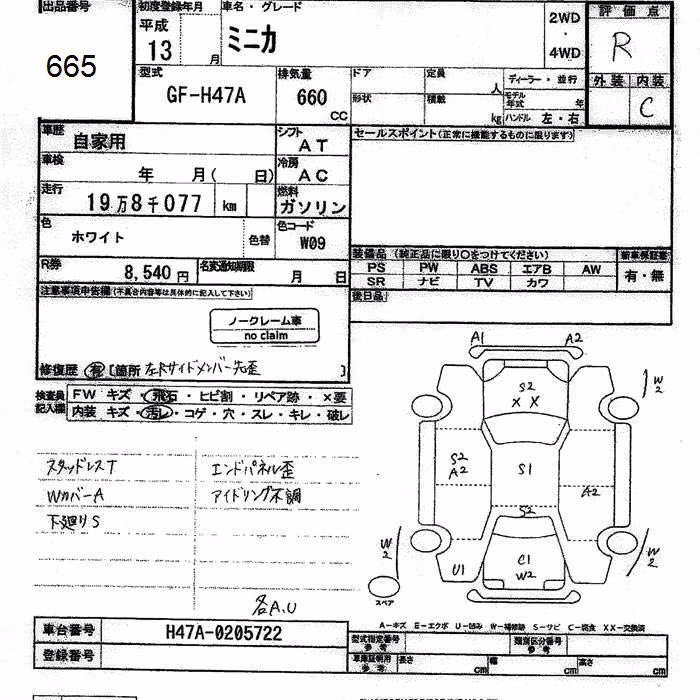 出品番号
665
初度登録年月
平成
13
月
車名・グレード
ミニカ
2WD
・
4WD
評価点
R
外装 内装
C
型式
GF-H47A
排気量
660
CC
ドア
定員
人
ディーラー・並行
形状
積載
kg
モデル年式 年
ハンドル 左・右
車歴
自家用
シフト
AT
車検
年 月( 日)
冷房
AC
走行
19万8千077 km
燃料
ガソリン
色
ホワイト
色替
色コード
W09
R券
8,540円
名変通知期限
月 日
セールスポイント(正常に機能するものに限ります)
装備品 (純正品に限り○をつけてください)
PS PW ABS エアB AW
SR ナビ TV カワ
新車保証書
有・無
後日品
注意事項申告欄(不具合内容等は具体的に記入して下さい)
ノークレーム車
no claim
修復歴 有 [箇所 左Rサイドメンバー先歪 ]
検査員記入欄
FW キズ・飛石・ヒビ割・リペア跡・×要
内装 キズ・汚レ・コゲ・穴・スレ・キレ・破レ
スタッドレスT
エンドパネル歪
WカバーA
アイドリング不調
下廻りS
各A,U
A1
A2
S2
X X
W2
S2
A2
S1
A2
S2
W2
W2
C1
W2
U1
スペア
A-キズ E-エクボ U-凹み W-補修跡 S-サビ C-腐食 XX-交換済
車台番号
H47A-0205722
登録番号
型式指定番号
参考
類別区分番号
参考
車庫証明用
参考
長さ
cm
幅
cm
高さ
cm